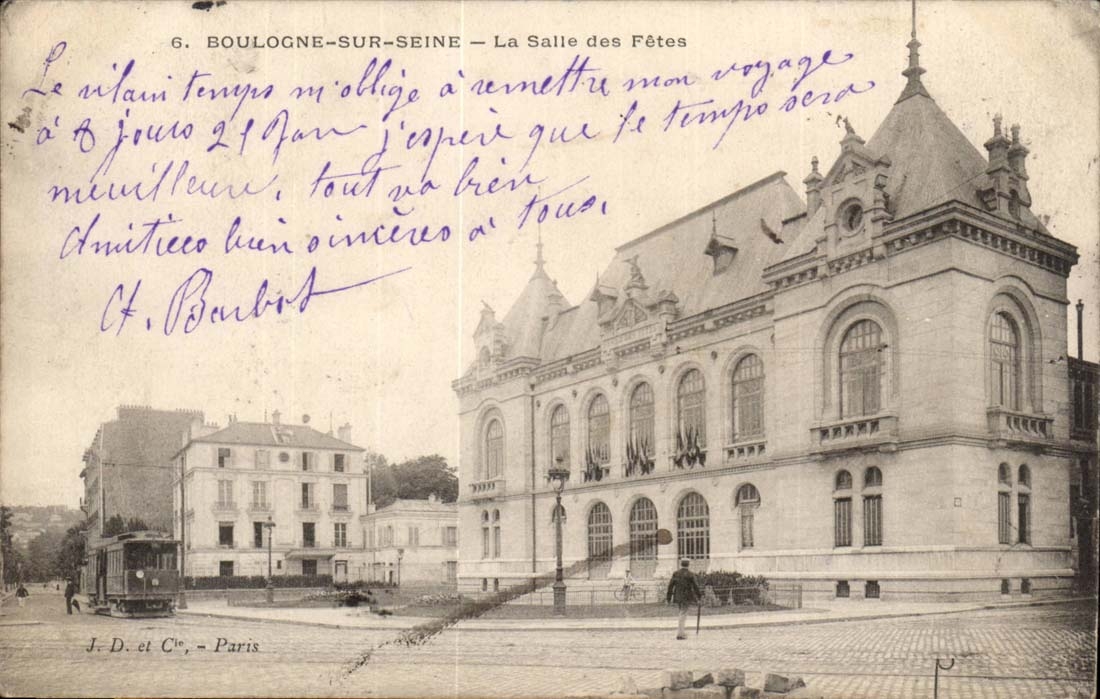 6. BOULOGNE-SUR-SEINE — La Salle des Fêtes
Le vilain temps m'oblige à remettre mon voyage
à 8 jours 21 j'espère que le temps sera
meuilleure, tout va bien
Amitiees bien sincères à tous,
A. Barbot
J. D. et Cie, - Paris